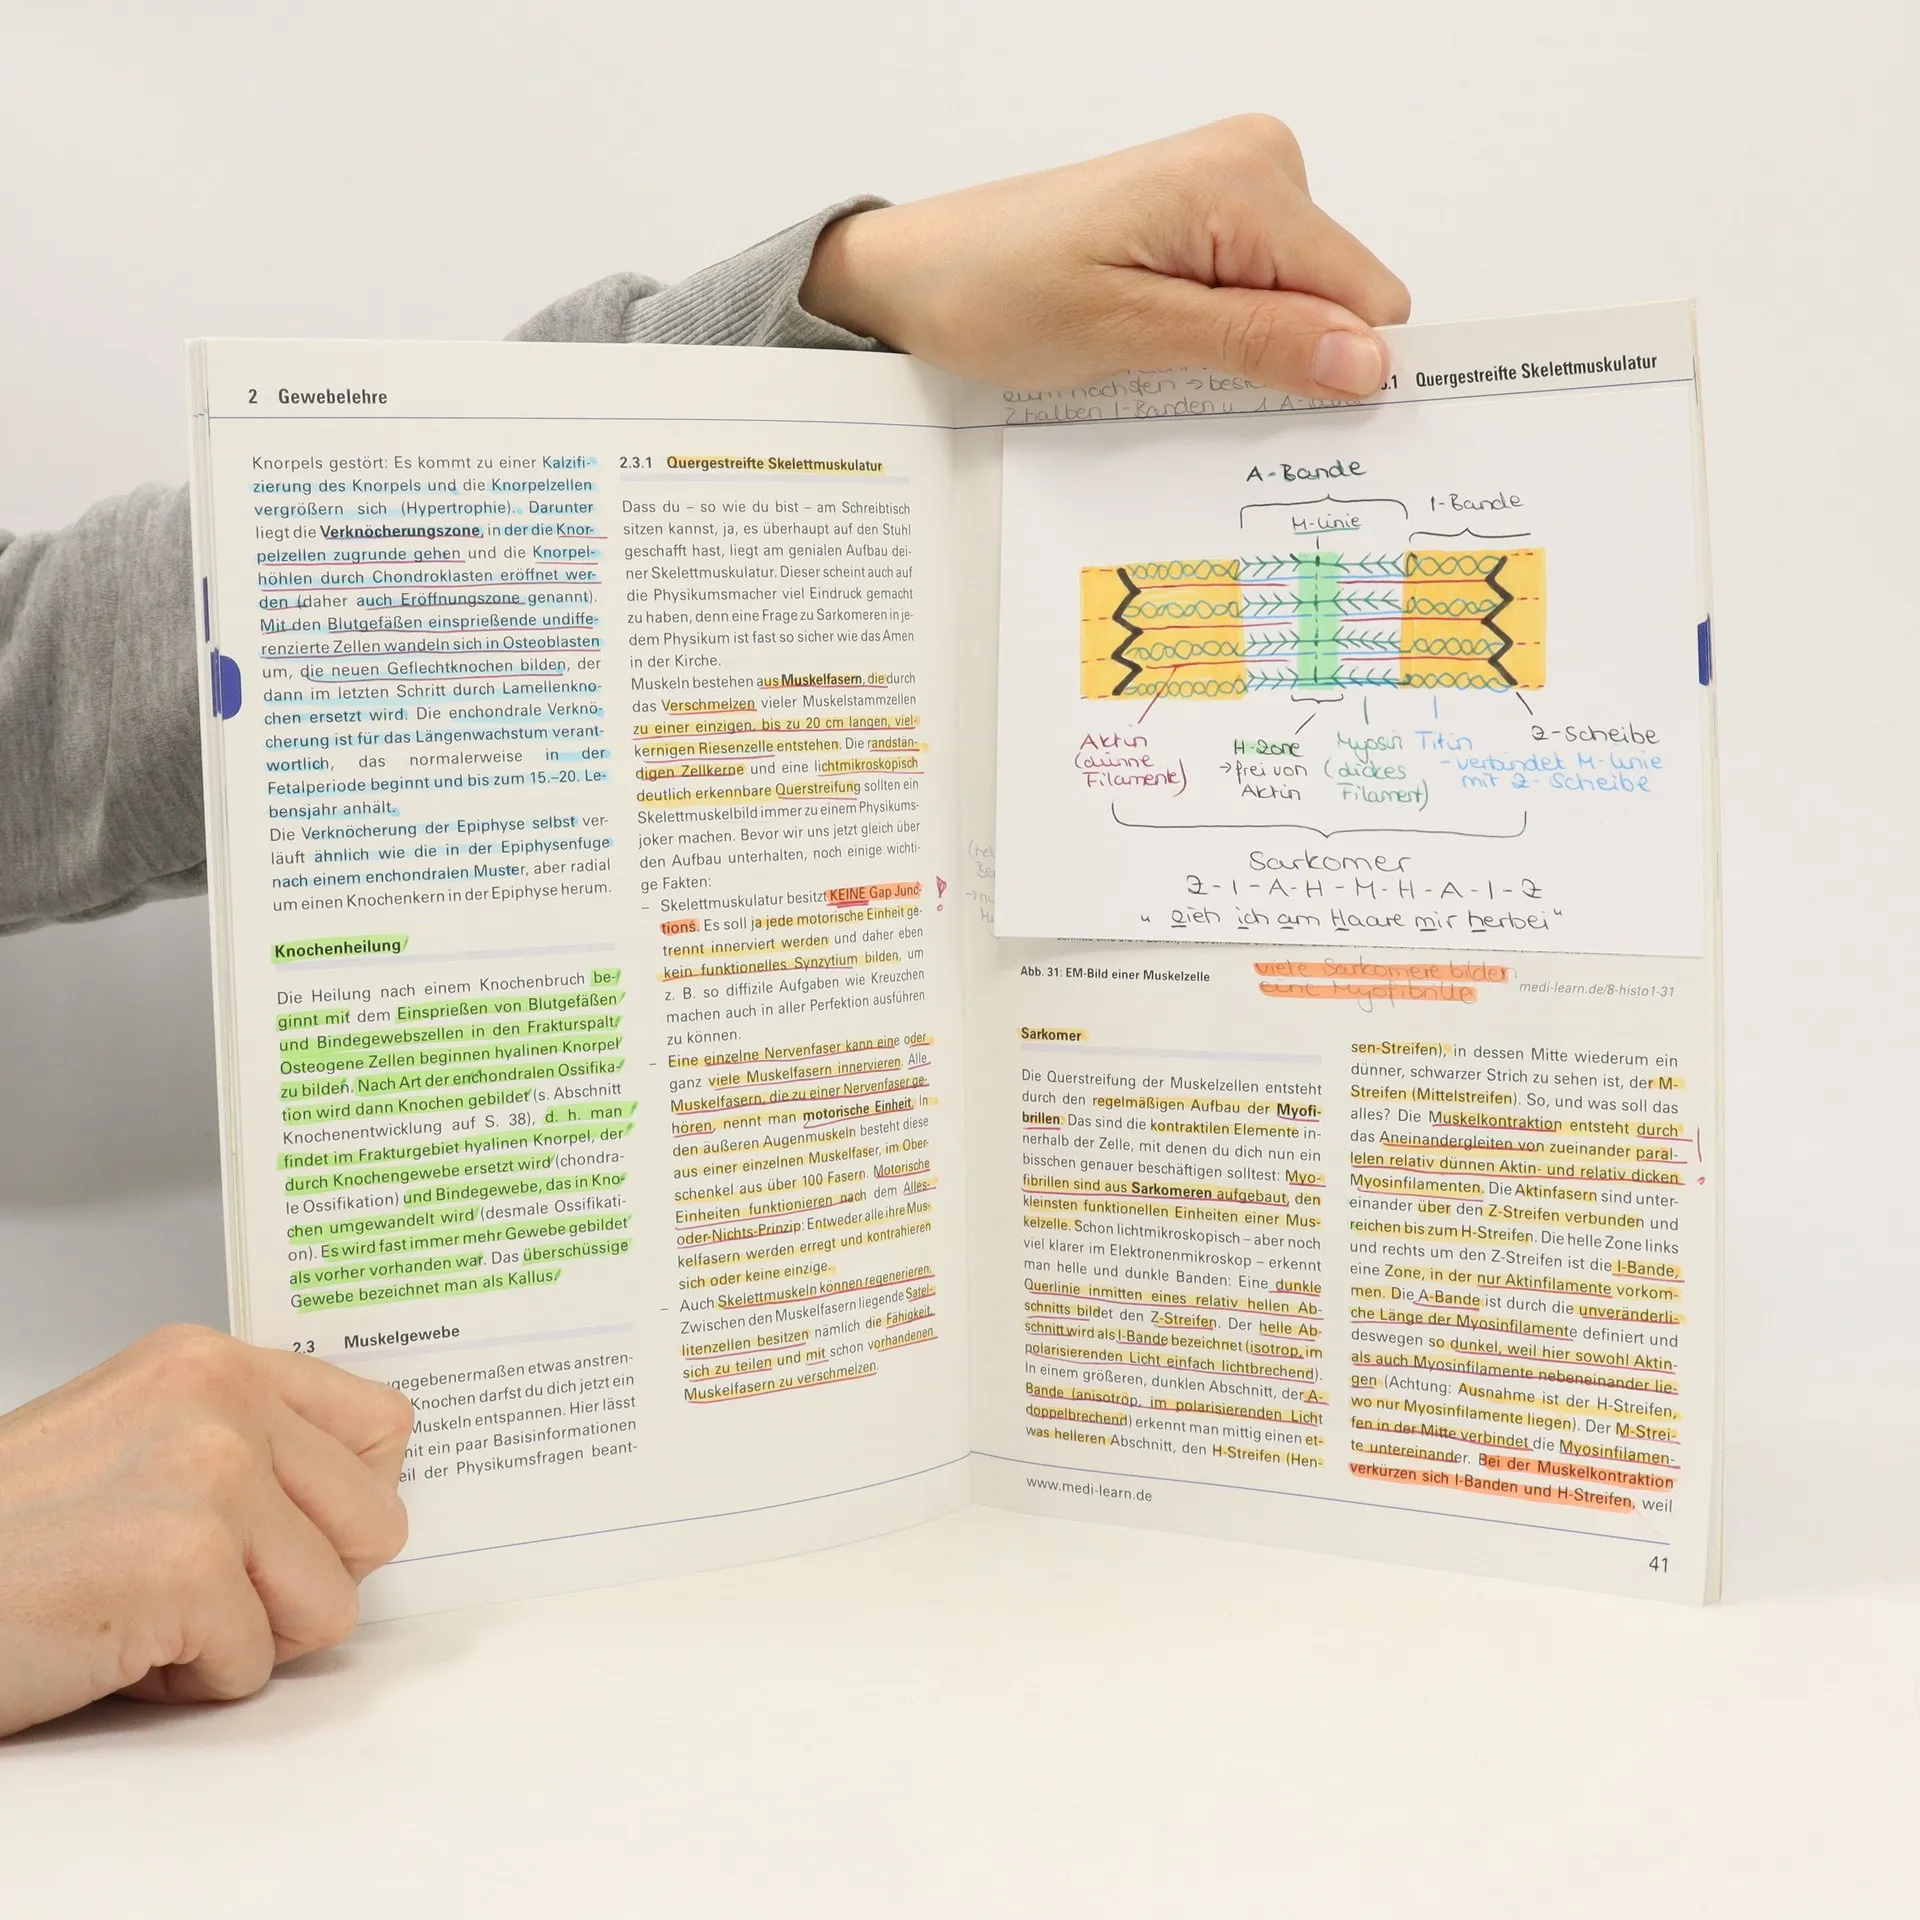 2 Gewebelehre
Knorpels gestört: Es kommt zu einer Kalzifi-
zierung des Knorpels und die Knorpelzellen
vergrößern sich (Hypertrophie). Darunter
liegt die Verknöcherungszone, in der die Knor-
pelzellen zugrunde gehen und die Knorpel-
höhlen durch Chondroklasten eröffnet wer-
den (daher auch Eröffnungszone genannt).
Mit den Blutgefäßen einsprießende undiffe-
renzierte Zellen wandeln sich in Osteoblasten
um, die neuen Geflechtknochen bilden, der
dann im letzten Schritt durch Lamellenkno-
chen ersetzt wird. Die enchondrale Verknö-
cherung ist für das Längenwachstum verant-
wortlich, das normalerweise in der
Fetalperiode beginnt und bis zum 15.–20. Le-
bensjahr anhält.
Die Verknöcherung der Epiphyse selbst ver-
läuft ähnlich wie die in der Epiphysenfuge
nach einem enchondralen Muster, aber radial
um einen Knochenkern in der Epiphyse herum.
Knochenheilung
Die Heilung nach einem Knochenbruch be-
ginnt mit dem Einsprießen von Blutgefäßen
und Bindegewebszellen in den Frakturspalt.
Osteogene Zellen beginnen hyalinen Knorpel
zu bilden. Nach Art der enchondralen Ossifika-
tion wird dann Knochen gebildet (s. Abschnitt
Knochenentwicklung auf S. 38), d. h. man
findet im Frakturgebiet hyalinen Knorpel, der
durch Knochengewebe ersetzt wird (chondra-
le Ossifikation) und Bindegewebe, das in Kno-
chen umgewandelt wird (desmale Ossifikati-
on). Es wird fast immer mehr Gewebe gebildet
als vorher vorhanden war. Das überschüssige
Gewebe bezeichnet man als Kallus.
2.3 Muskelgewebe
gegebenermaßen etwas anstren-
Knochen darfst du dich jetzt ein
Muskeln entspannen. Hier lässt
mit ein paar Basisinformationen
eil der Physikumsfragen beant-
2.3.1 Quergestreifte Skelettmuskulatur
Dass du – so wie du bist – am Schreibtisch
sitzen kannst, ja, es überhaupt auf den Stuhl
geschafft hast, liegt am genialen Aufbau dei-
ner Skelettmuskulatur. Dieser scheint auch auf
die Physikumsmacher viel Eindruck gemacht
zu haben, denn eine Frage zu Sarkomeren in je-
dem Physikum ist fast so sicher wie das Amen
in der Kirche.
Muskeln bestehen aus Muskelfasern, die durch
das Verschmelzen vieler Muskelstammzellen
zu einer einzigen, bis zu 20 cm langen, viel-
kernigen Riesenzelle entstehen. Die randstän-
digen Zellkerne und eine lichtmikroskopisch
deutlich erkennbare Querstreifung sollten ein
Skelettmuskelbild immer zu einem Physikums-
joker machen. Bevor wir uns jetzt gleich über
den Aufbau unterhalten, noch einige wichti-
ge Fakten:
– Skelettmuskulatur besitzt KEINE Gap Junc-
tions. Es soll ja jede motorische Einheit ge-
trennt innerviert werden und daher eben
kein funktionelles Synzytium bilden, um
z. B. so diffizile Aufgaben wie Kreuzchen
machen auch in aller Perfektion ausführen
zu können.
– Eine einzelne Nervenfaser kann eine oder
ganz viele Muskelfasern innervieren. Alle
Muskelfasern, die zu einer Nervenfaser ge-
hören, nennt man motorische Einheit. In
den äußeren Augenmuskeln besteht diese
aus einer einzelnen Muskelfaser, im Ober-
schenkel aus über 100 Fasern. Motorische
Einheiten funktionieren nach dem Alles-
oder-Nichts-Prinzip: Entweder alle ihre Mus-
kelfasern werden erregt und kontrahieren
sich oder keine einzige.
– Auch Skelettmuskeln können regenerieren.
Zwischen den Muskelfasern liegende Satel-
litenzellen besitzen nämlich die Fähigkeit,
sich zu teilen und mit schon vorhandenen
Muskelfasern zu verschmelzen.
.1 Quergestreifte Skelettmuskulatur
zum nächsten →
2 halben I-Banden u. 1 A-
A-Bande
I-Bande
M-Linie
Aktin
(dünne
Filamente)
H-Zone
→ frei von
Aktin
Myosin
(dickes
Filament)
Titin
- verbindet M-Linie
mit Z-Scheibe
Z-Scheibe
Sarkomer
Z-I-A-H-M-H-A-I-Z
"Zieh ich am Haare mir herbei"
Abb. 31: EM-Bild einer Muskelzelle
viele Sarkomere bilden
eine Myofibrille
medi-learn.de/8-histo1-31
Sarkomer
Die Querstreifung der Muskelzellen entsteht
durch den regelmäßigen Aufbau der Myofi-
brillen. Das sind die kontraktilen Elemente in-
nerhalb der Zelle, mit denen du dich nun ein
bisschen genauer beschäftigen solltest: Myo-
fibrillen sind aus Sarkomeren aufgebaut, den
kleinsten funktionellen Einheiten einer Mus-
kelzelle. Schon lichtmikroskopisch – aber noch
viel klarer im Elektronenmikroskop – erkennt
man helle und dunkle Banden: Eine dunkle
Querlinie inmitten eines relativ hellen Ab-
schnitts bildet den Z-Streifen. Der helle Ab-
schnitt wird als I-Bande bezeichnet (isotrop, im
polarisierenden Licht einfach lichtbrechend).
In einem größeren, dunklen Abschnitt, der A-
Bande (anisotrop, im polarisierenden Licht
doppelbrechend) erkennt man mittig einen et-
was helleren Abschnitt, den H-Streifen (Hen-
sen-Streifen), in dessen Mitte wiederum ein
dünner, schwarzer Strich zu sehen ist, der M-
Streifen (Mittelstreifen). So, und was soll das
alles? Die Muskelkontraktion entsteht durch
das Aneinandergleiten von zueinander paral-
lelen relativ dünnen Aktin- und relativ dicken
Myosinfilamenten. Die Aktinfasern sind unter-
einander über den Z-Streifen verbunden und
reichen bis zum H-Streifen. Die helle Zone links
und rechts um den Z-Streifen ist die I-Bande,
eine Zone, in der nur Aktinfilamente vorkom-
men. Die A-Bande ist durch die unveränderli-
che Länge der Myosinfilamente definiert und
deswegen so dunkel, weil hier sowohl Aktin-
als auch Myosinfilamente nebeneinander lie-
gen (Achtung: Ausnahme ist der H-Streifen,
wo nur Myosinfilamente liegen). Der M-Strei-
fen in der Mitte verbindet die Myosinfilamen-
te untereinander. Bei der Muskelkontraktion
verkürzen sich I-Banden und H-Streifen, weil
www.medi-learn.de
41